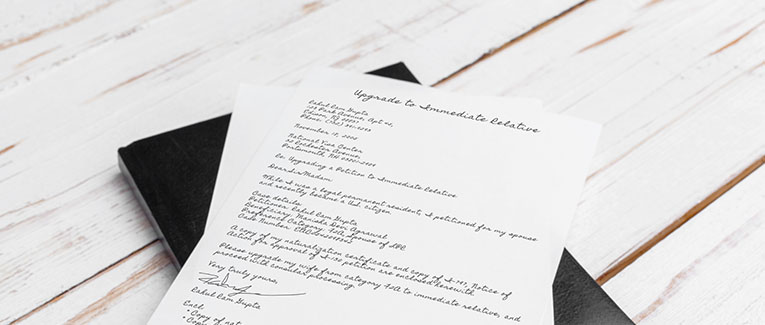 Upgrade to Immediate Relative
Rahul Ram Gupta
Park Avenue, Apt
Edison, NJ
Phone:
November 12,
National Visa Center
Rochester Avenue,
Portsmouth, NH
Re: Upgrading a Petition to Immediate Relative
Dear Sir/Madam
While I was a legal permanent resident, I petitioned for my spouse
and recently became a U.S. citizen.
Case details:
Petitioner: Rahul Ram Gupta
Beneficiary: Manisha Devi Agrawal
Preference Category: Spouse of LPR
Case Number:
A copy of my naturalization certificate and copy of I-797, Notice of
Action for approval of I-130 petition are enclosed herewith.
Please upgrade my wife from category F2A to immediate relative, and
proceed with consular processing.
Very truly yours,
Rahul Ram Gupta
Encl:
• Copy of nat